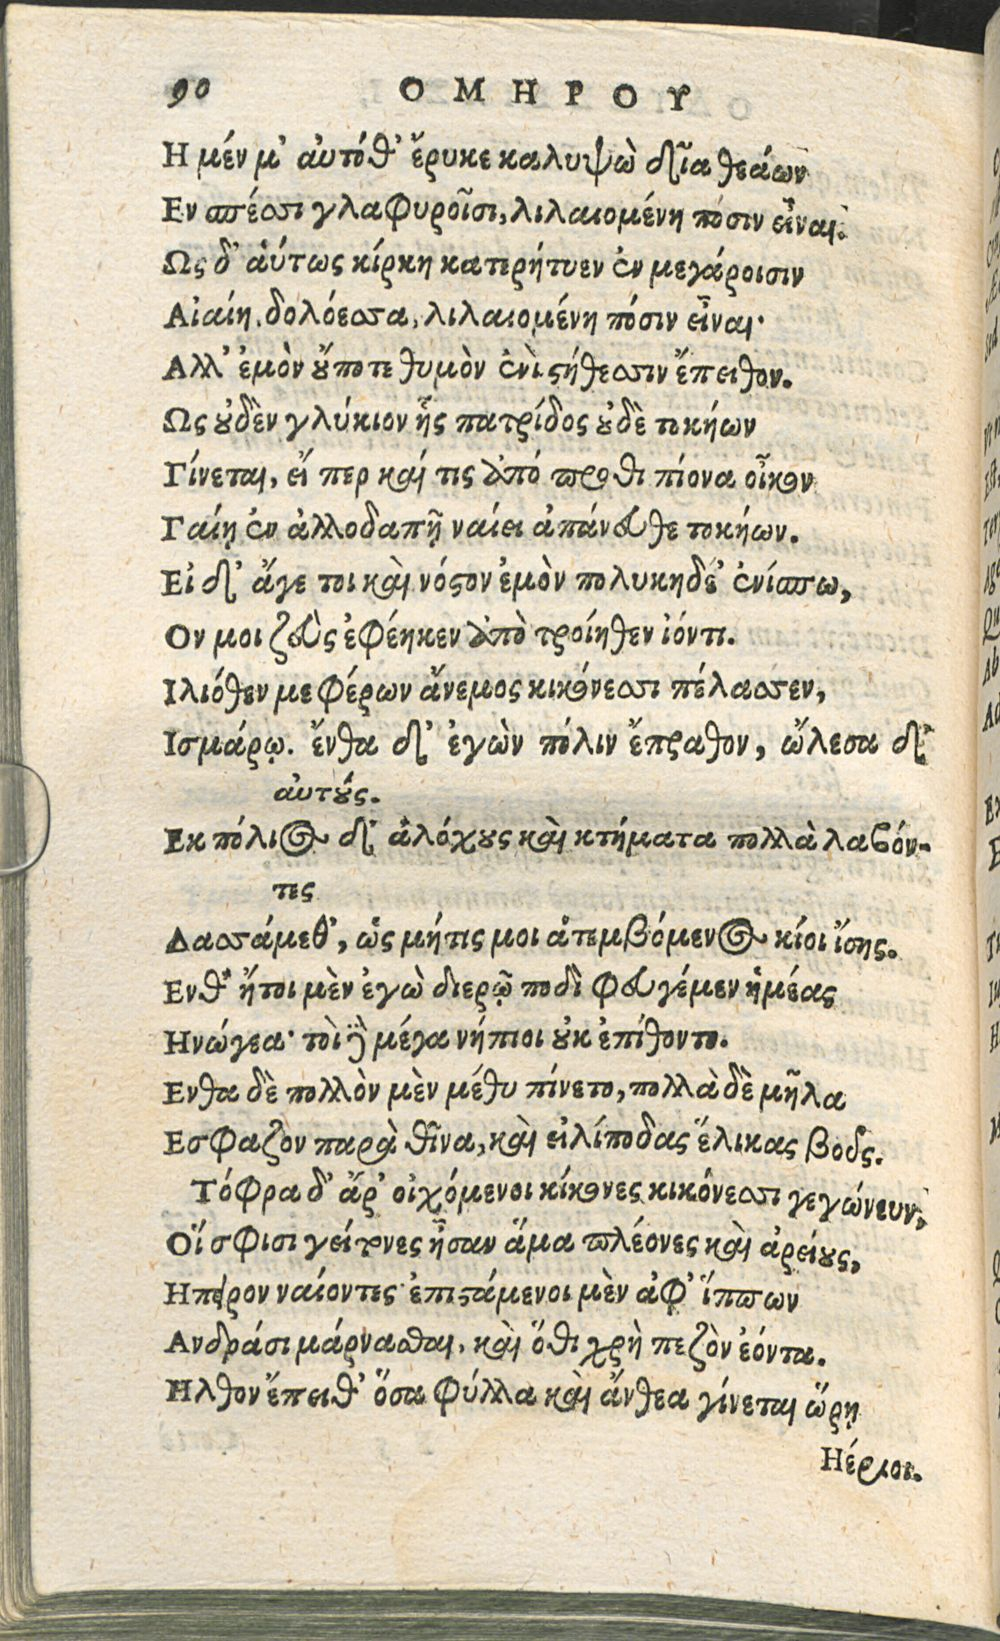 90 ΟΜΗΡΟΥ
Η μέν μ' αὐτόθ' ἔρυκε καλυψὼ δῖα θεάων
Εν σπέσσι γλαφυροῖσι, λιλαιομένη πόσιν εἶναι.
Ως δ' αὔτως κίρκη κατερήτυεν ἐν μεγάροισιν
Αἰαίη, δολόεσσα, λιλαιομένη πόσιν εἶναι·
Αλλ' ἐμὸν οὔποτε θυμὸν ἐνὶ στήθεσσιν ἔπειθον.
Ως οὐδὲν γλύκιον ἧς πατρίδος οὐδὲ τοκήων
Γίνεται, εἴ περ καί τις ἀπό προθι πίονα οἶκον
Γαίῃ ἐν ἀλλοδαπῇ ναίει ἀπάνευθε τοκήων.
Εἰ δ' ἄγε τοι καὶ νόστον ἐμὸν πολυκηδέ' ἐνίσπω,
Ον μοι ζεὺς ἐφέηκεν ἀπὸ τροίηθεν ἰόντι.
Ιλιόθεν με φέρων ἄνεμος κικόνεσσι πέλασσεν,
Ισμάρῳ. ἔνθα δ' ἐγὼν πόλιν ἔπραθον, ὤλεσα δ'
αὐτούς.
Εκ πόλιος δ' ἀλόχους καὶ κτήματα πολλὰ λαβόν-
τες
Δασσάμεθ', ὡς μήτις μοι ἀτεμβόμενος κίοι ἴσης.
Ενθ' ἤτοι μὲν ἐγὼ διερῷ ποδὶ φευγέμεν ἡμέας
Ηνώγεα· τοὶ δὲ μέγα νήπιοι οὐκ ἐπίθοντο.
Ενθα δὲ πολλὸν μὲν μέθυ πίνετο, πολλὰ δὲ μῆλα
Εσφαζον παρὰ θῖνα, καὶ εἰλίποδας ἕλικας βοῦς.
Τόφρα δ' ἄρ' οἰχόμενοι κίκονες κικόνεσσι γεγώνευν,
Οἵ σφισι γείτονες ἦσαν ἅμα πλέονες καὶ ἀρείους,
Ηπειρον ναίοντες· ἐπιστάμενοι μὲν ἀφ' ἵππων
Ανδράσι μάρνασθαι, καὶ ὅθι χρὴ πεζὸν ἐόντα.
Ηλθον ἔπειθ' ὅσα φύλλα καὶ ἄνθεα γίνεται ὥρῃ
Ηέριοι.